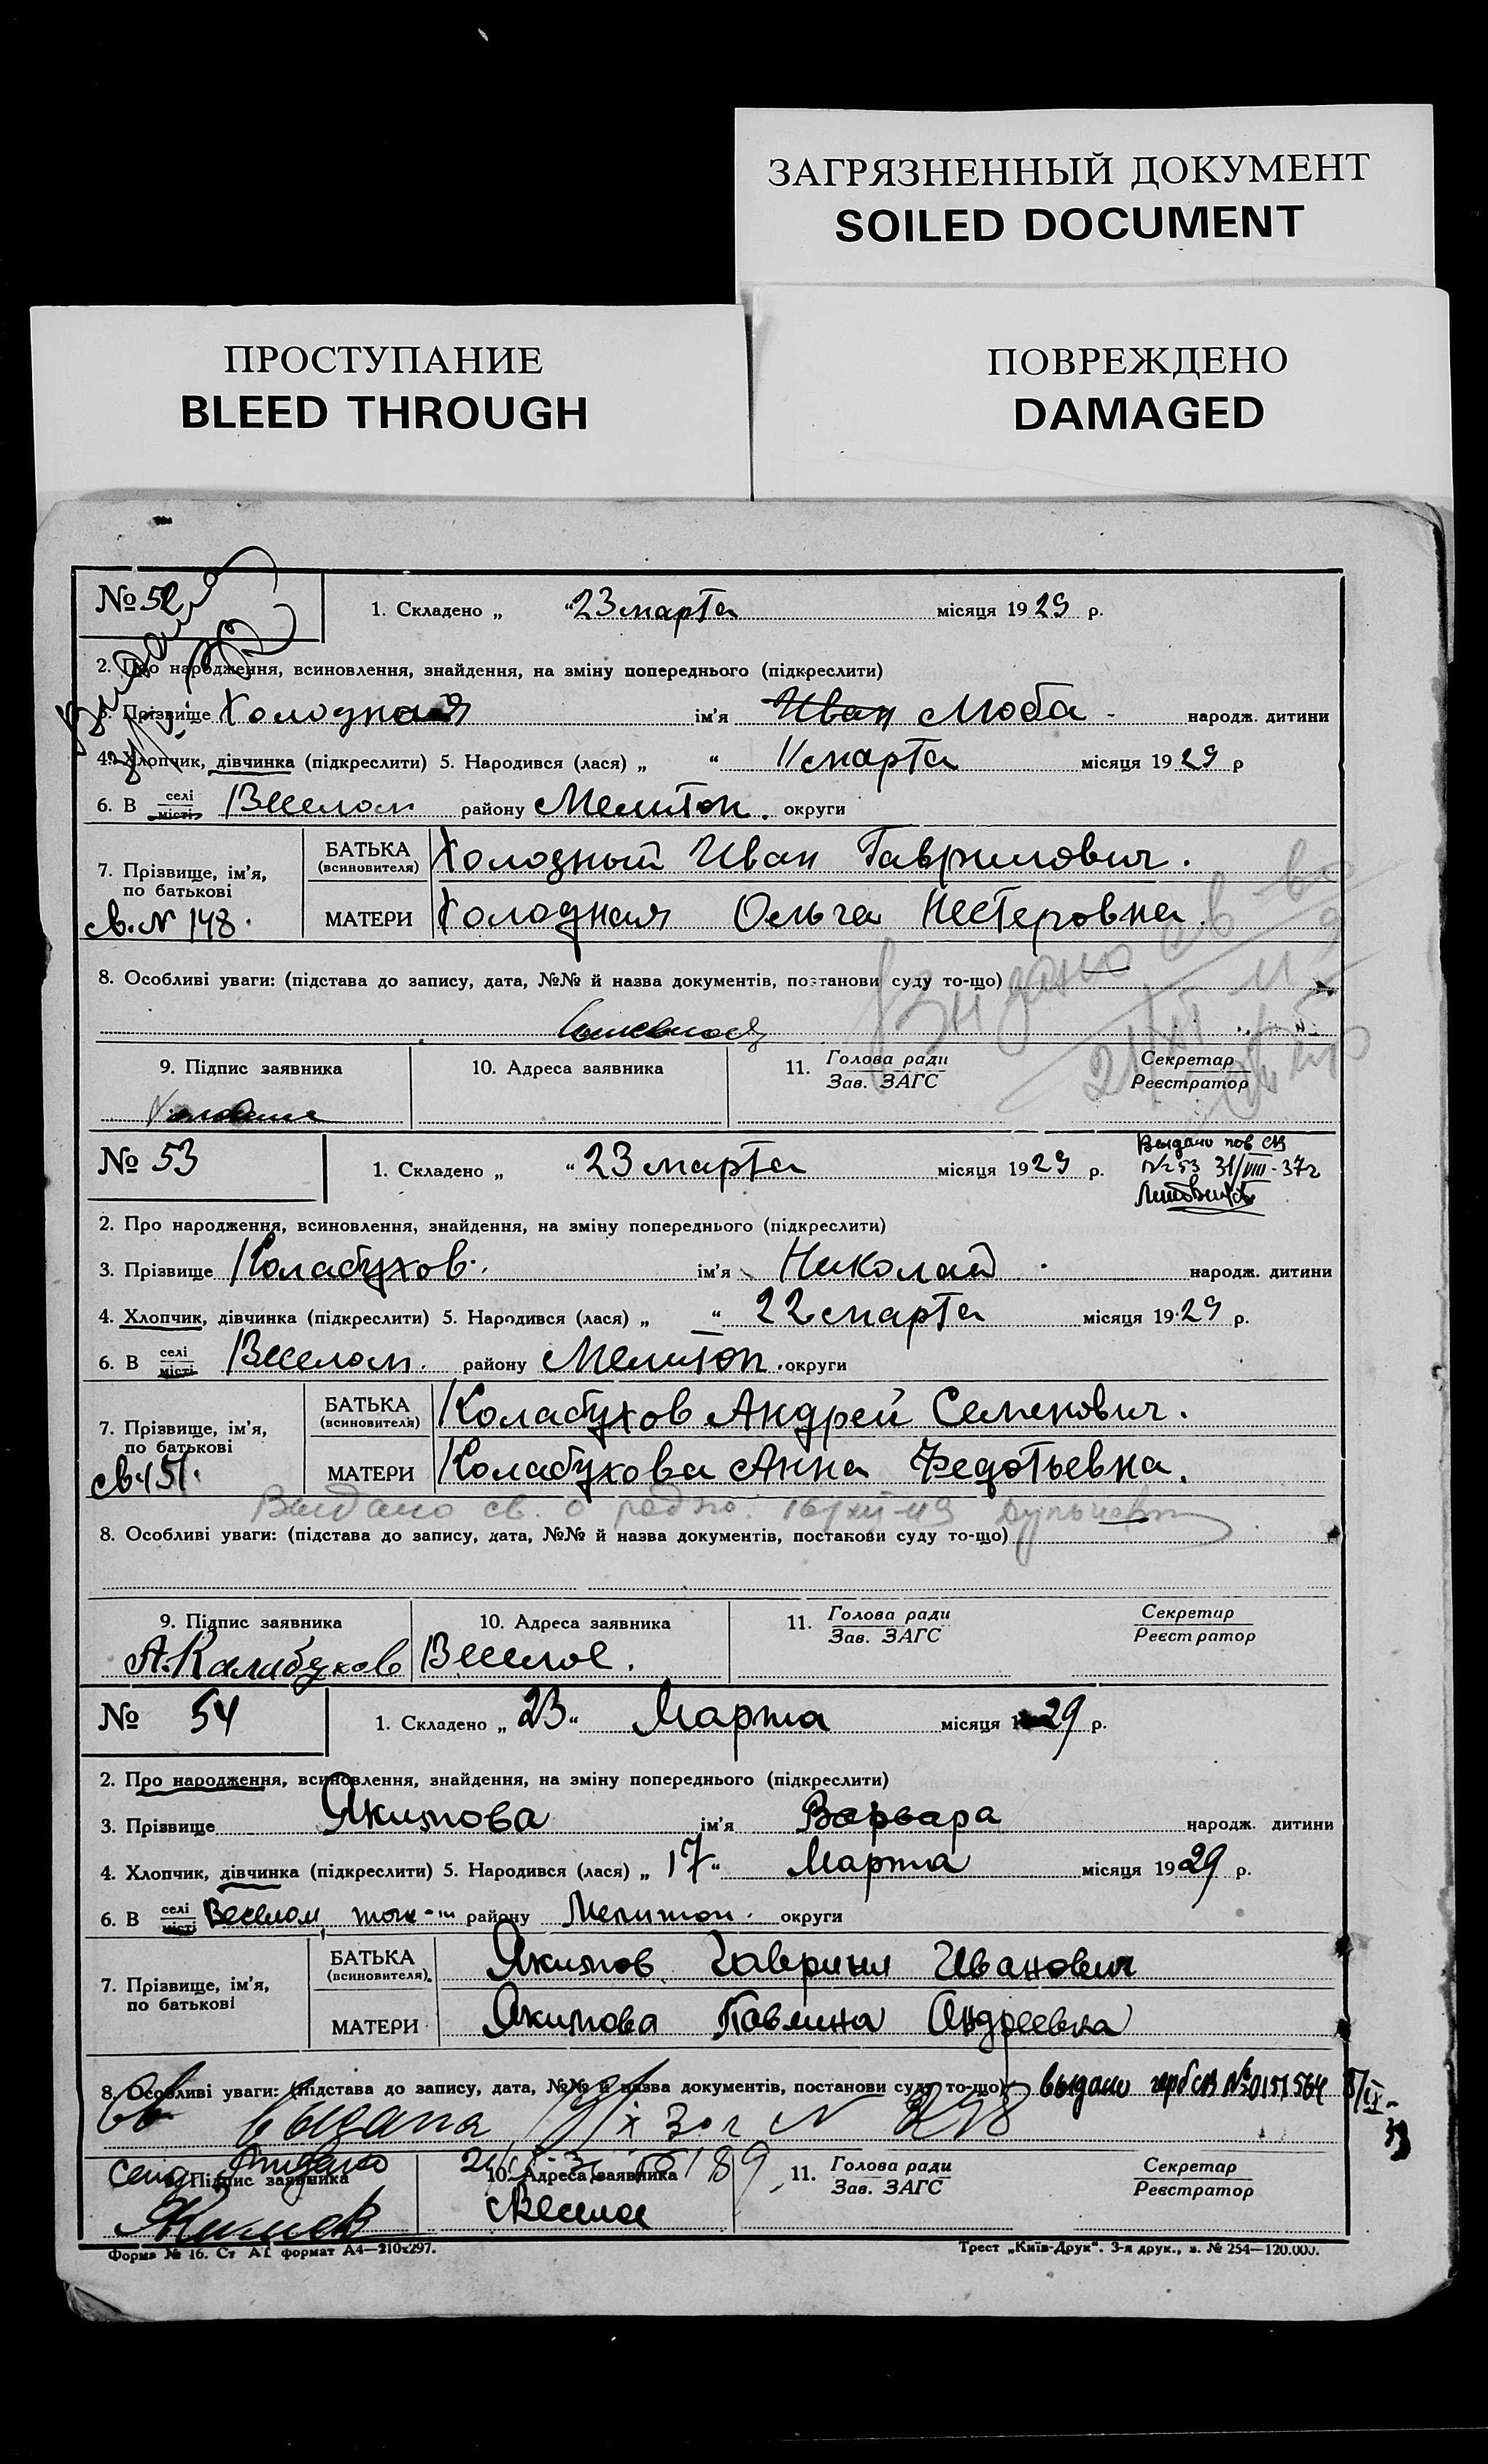 ЗАГРЯЗНЕННЫЙ ДОКУМЕНТ
SOILED DOCUMENT
ПРОСТУПАНИЕ
BLEED THROUGH
ПОВРЕЖДЕНО
DAMAGED
№ 52 1. Складено „ “ 23 марта місяця 1929 р.
2. Про народження, всиновлення, знайдення, на зміну попереднього (підкреслити)
3. Прізвище Холодная ім’я Иван Люба - народж. дитини
4. Хлопчик, дівчинка (підкреслити) 5. Народився (лася) „ “ 11 марта місяця 1929 р
6. В селі місті Веселом району Мелитоп. округи
7. Прізвище, ім’я, по батькові БАТЬКА (всиновителя) Холодный Иван Гаврилович.
св. № 148. МАТЕРИ Холодная Ольга Нестеровна.
Выдано св во
8. Особливі уваги: (підстава до запису, дата, №№ й назва документів, постанови суду то-що)
9. Підпис заявника 10. Адреса заявника 11. Голова ради Зав. ЗАГС Секретар Реєстратор
№ 53 1. Складено „ “ 23 марта місяця 1929 р.
Выдано пов св
№ 53 31/VIII-37г
2. Про народження, всиновлення, знайдення, на зміну попереднього (підкреслити)
3. ПрізвищеКолабухов. ім’я Николай народж. дитини
4. Хлопчик, дівчинка (підкреслити) 5. Народився (лася) „ “ 22 марта місяця 1929 р.
6. В селі місті Веселом. району Мелитоп. округи
7. Прізвище, ім’я, по батькові БАТЬКА (всиновителя) Колабухов Андрей Семенович.
св 151. МАТЕРИ Колабухова Анна Федотьевна.
Выдано св. о
8. Особливі уваги: (підстава до запису, дата, №№ й назва документів, постанови суду то-що)
9. Підпис заявника 10. Адреса заявника 11. Голова ради Зав. ЗАГС Секретар Реєстратор
А. Калабухов Веселое.
№ 54 1. Складено „ 23 “ Марта місяця 1929 р.
2. Про народження, всиновлення, знайдення, на зміну попереднього (підкреслити)
3. Прізвище Якимова ім’я Варвара народж. дитини
4. Хлопчик, дівчинка (підкреслити) 5. Народився (лася) „ 17 “ Марта місяця 1929 р.
6. В селі місті Веселом, того-ж району Мелитоп. округи
7. Прізвище, ім’я, по батькові БАТЬКА (всиновителя) Якимов Гавриил Иванович
МАТЕРИ Якимова Павлина Андреевна
8. Особливі уваги: (підстава до запису, дата, №№ й назва документів, постанови суду то-що) выдано герб св № 0151564
Св выдана
9. Підпис заявника 10. Адреса заявника 11. Голова ради Зав. ЗАГС Секретар Реєстратор
Якимов с Веселое
Форма № 16. Ст А1 формат А4—210х297. Трест „Київ-Друк“. 3-я друк., з. № 254—120.000.